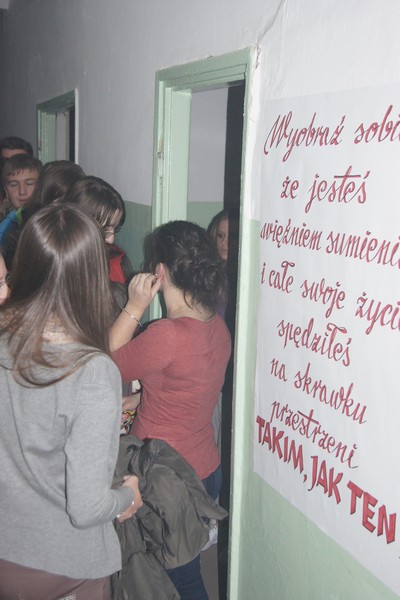 Wyobraź sobie
że jesteś
więźniem sumienia
i całe swoje życie
spędziłeś
na skrawku
przestrzeni
TAKIM, JAK TEN